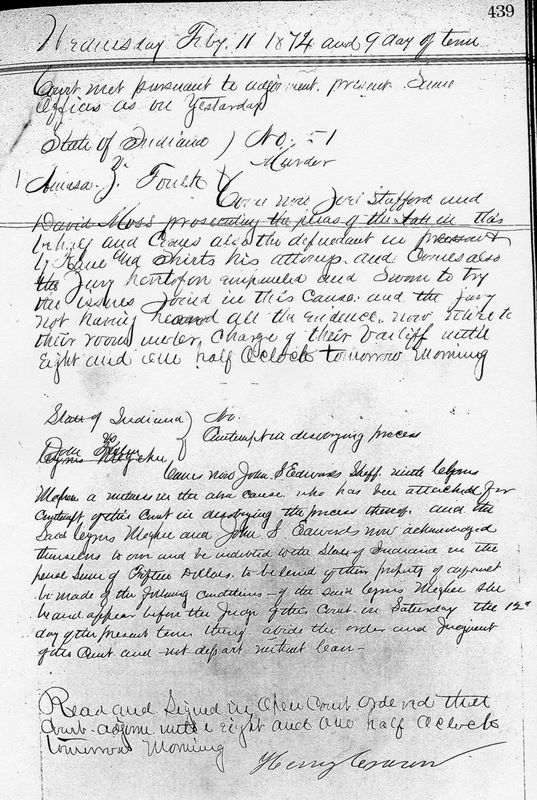 439
Wednesday Feby. 11 1874 and 9 day of term
Court met pursuant to adjournment. present Same
officers as on Yesterday
State of Indiana ) No. 51
vs ) Murder
Amasa. J. Foulk
Come now Joel Stafford and
David Moss prosecuting the pleas of the state in this
behalf and Comes also the defendant in person &
by Kane and Shirts his attorneys. and Comes also
the Jury heretofore empaneled and Sworn to try
the issues Joined in this Cause. and the jury
not having heard all the evidence. now retire to
their room under Charge of their bailiff until
Eight and one half O Clock tomorrow Morning
State of Indiana ) No.
vs } Contempt in disobeying process
Cyrus
Comes now John S Edwards Sheff. with Cyrus
a witness in the above cause. who has been attached for
Contempt of this Court in disobeying the process thereof. and the
Said Cyrus and John S. Edwards now acknowledged
themselves to owe and be indebted to the State of Indiana in the
penal Sum of Fifteen Dollars. to be levied of their property if default
be made of the following Conditions - if the said Cyrus shall
be and appear before the Judge of this Court. on Saturday the
day of the present term thereof. abide the order and Judgment
of the Court and not depart without leave -
Read and Signed in Open Court Ordered that
Court adjourn until eight and one half O Clock
tomorrow Morning
Henry Craven